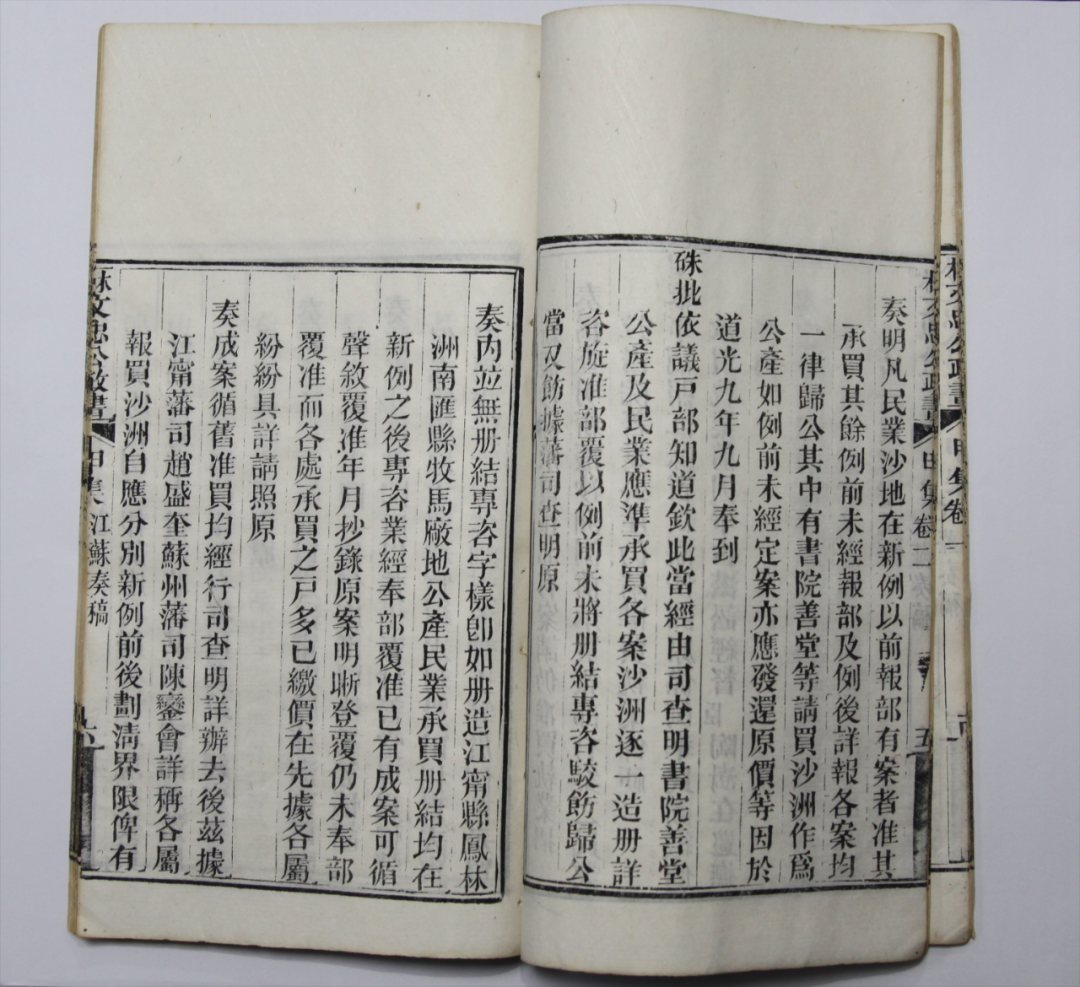 奏明凡民業沙地在新例以前報部有案者准其
承買其餘例前未經報部及例後詳報各案均
一律歸公其中有書院善堂等請買沙洲作爲
公產如例前未經定案亦應發還原價等因於
道光九年九月奉到
硃批依議戶部知道欽此當經由司查明書院善堂
公產及民業應準承買各案沙洲逐一造册詳
咨旋准部覆以例前未將册結專咨駮飭歸公
當又飭據藩司查明原
奏內並無册結專咨字樣卽如册造江甯縣鳳林
洲南匯縣牧馬廠地公產民業承買册結均在
新例之後專咨業經奉部覆准已有成案可循
聲敘覆准年月抄錄原案明晰登覆仍未奉部
覆准而各處承買之戶多已繳價在先據各屬
紛紛具詳請照原
奏成案循舊准買均經行司查明詳辦去後茲據
江甯藩司趙盛奎蘇州藩司陳鑾會詳稱各屬
報買沙洲自應分別新例前後劃清界限俾有
林文忠公政書 甲集 江蘇奏稿 六
林文忠公政書 甲集 卷二 五
林文忠公政書 甲集卷